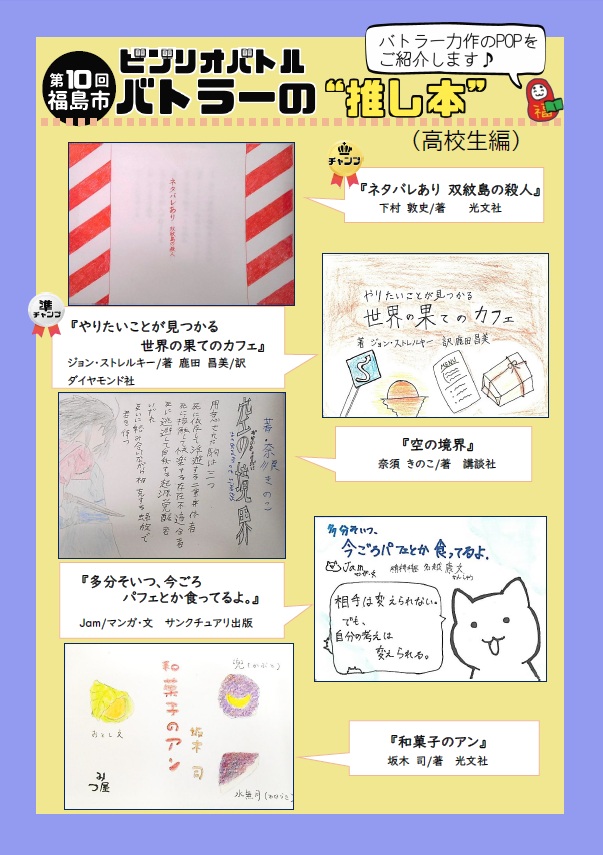 第10回
福島市
ビブリオバトル
バトラーの“推し本”
バトラー力作のPOPを
ご紹介します♪
福
（高校生編）
チャンプ
『ネタバレあり 双紋島の殺人』
下村 敦史/著 光文社
ネタバレあり 双紋島の殺人
準
チャンプ
『やりたいことが見つかる
世界の果てのカフェ』
ジョン・ストレルキー/著 鹿田 昌美/訳
ダイヤモンド社
やりたいことが見つかる
世界の果てのカフェ
著 ジョン・ストレルキー 訳 鹿田昌美
MENU
『空の境界』
奈須 きのこ/著 講談社
空の境界
著・奈須きのこ
用意された駒は三つ
『多分そいつ、今ごろ
パフェとか食ってるよ。』
Jam/マンガ・文 サンクチュアリ出版
多分そいつ、
今ごろパフェとか食ってるよ。
Jam
相手は変えられない。
でも、
自分の考えは
変えられる。
『和菓子のアン』
坂木 司/著 光文社
和菓子のアン
坂木 司
兜(かぶと)
おとし文
みつ屋